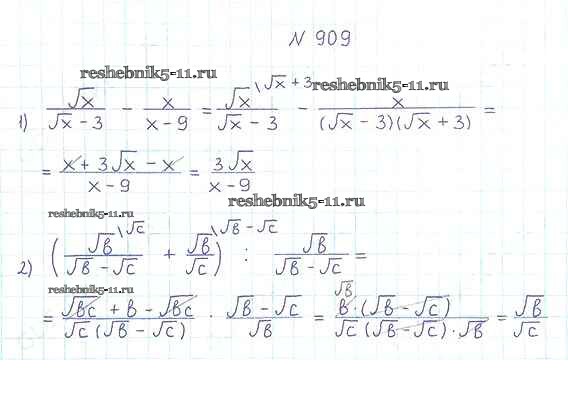 N 909
reshebnik5-11.ru
1) √x / (√x - 3) - x / (x - 9) = √x \ √x + 3 / (√x - 3) - x / ((√x - 3)(√x + 3)) =
reshebnik5-11.ru
= (x + 3√x - x) / (x - 9) = 3√x / (x - 9)
reshebnik5-11.ru
reshebnik5-11.ru
2) (√b \ √c / (√b - √c) + √b \ √b - √c / √c) : √b / (√b - √c) =
reshebnik5-11.ru
= (√bc + b - √bc) / (√c (√b - √c)) · (√b - √c) / √b = √b b · (√b - √c) / (√c (√b - √c) · √b) = √b / √c